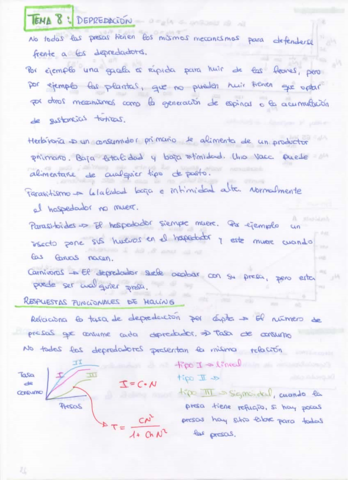 TEMA 8: DEPREDACIÓN
No todas las presas tienen los mismos mecanismos para defenderse
frente a los depredadores.
Por ejemplo una gacela es rápida para huir de los leones, pero
por ejemplo las plantas, que no pueden huir tienen que optar
por otros mecanismos como la generación de espinas o la acumulación
de sustancias tóxicas.
Herbivoría → un consumidor primario se alimenta de un productor
primario. Baja letalidad y baja intimidad. Una vaca puede
alimentarse de cualquier tipo de pasto.
Parasitismo → Letalidad baja e intimidad alta. Normalmente
el hospedador no muere.
Parasitoides → El hospedador siempre muere. Por ejemplo un
insecto pone sus huevos en el hospedador y este muere cuando
las larvas nacen.
Carnívoros → El depredador suele acabar con su presa, pero esta
puede ser cualquier presa.
RESPUESTAS FUNCIONALES DE HOLLING
Relaciona la tasa de depredación per cápita → El número de
presas que consume cada depredador. → Tasa de consumo
No todos los depredadores presentan la misma relación
Tasa
de
consumo
I
II
III
Presas
I = C · N
T = CN² / 1 + ChN²
tipo I → Lineal
tipo II →
tipo III → Sigmoidal, cuando la
presa tiene refugio. Si hay pocas
presas hay sitio libre para todas
las presas.